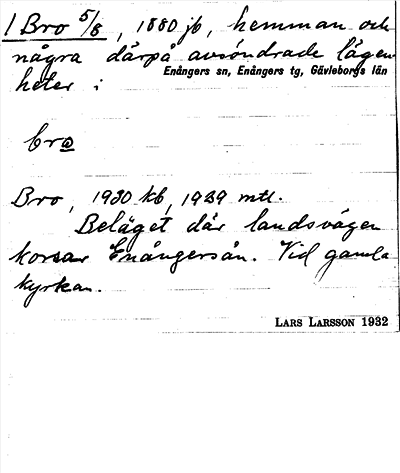 1 Bro 5/8, 1880 jb, hemman och
några därpå avsöndrade lägen
heter i Enångers sn, Enångers tg, Gävleborgs län
bro
Bro, 1930 kb, 1939 mtl.
Beläget där landsvägen
korsar Enångersån. Vid gamla
kyrkan.
LARS LARSSON 1932